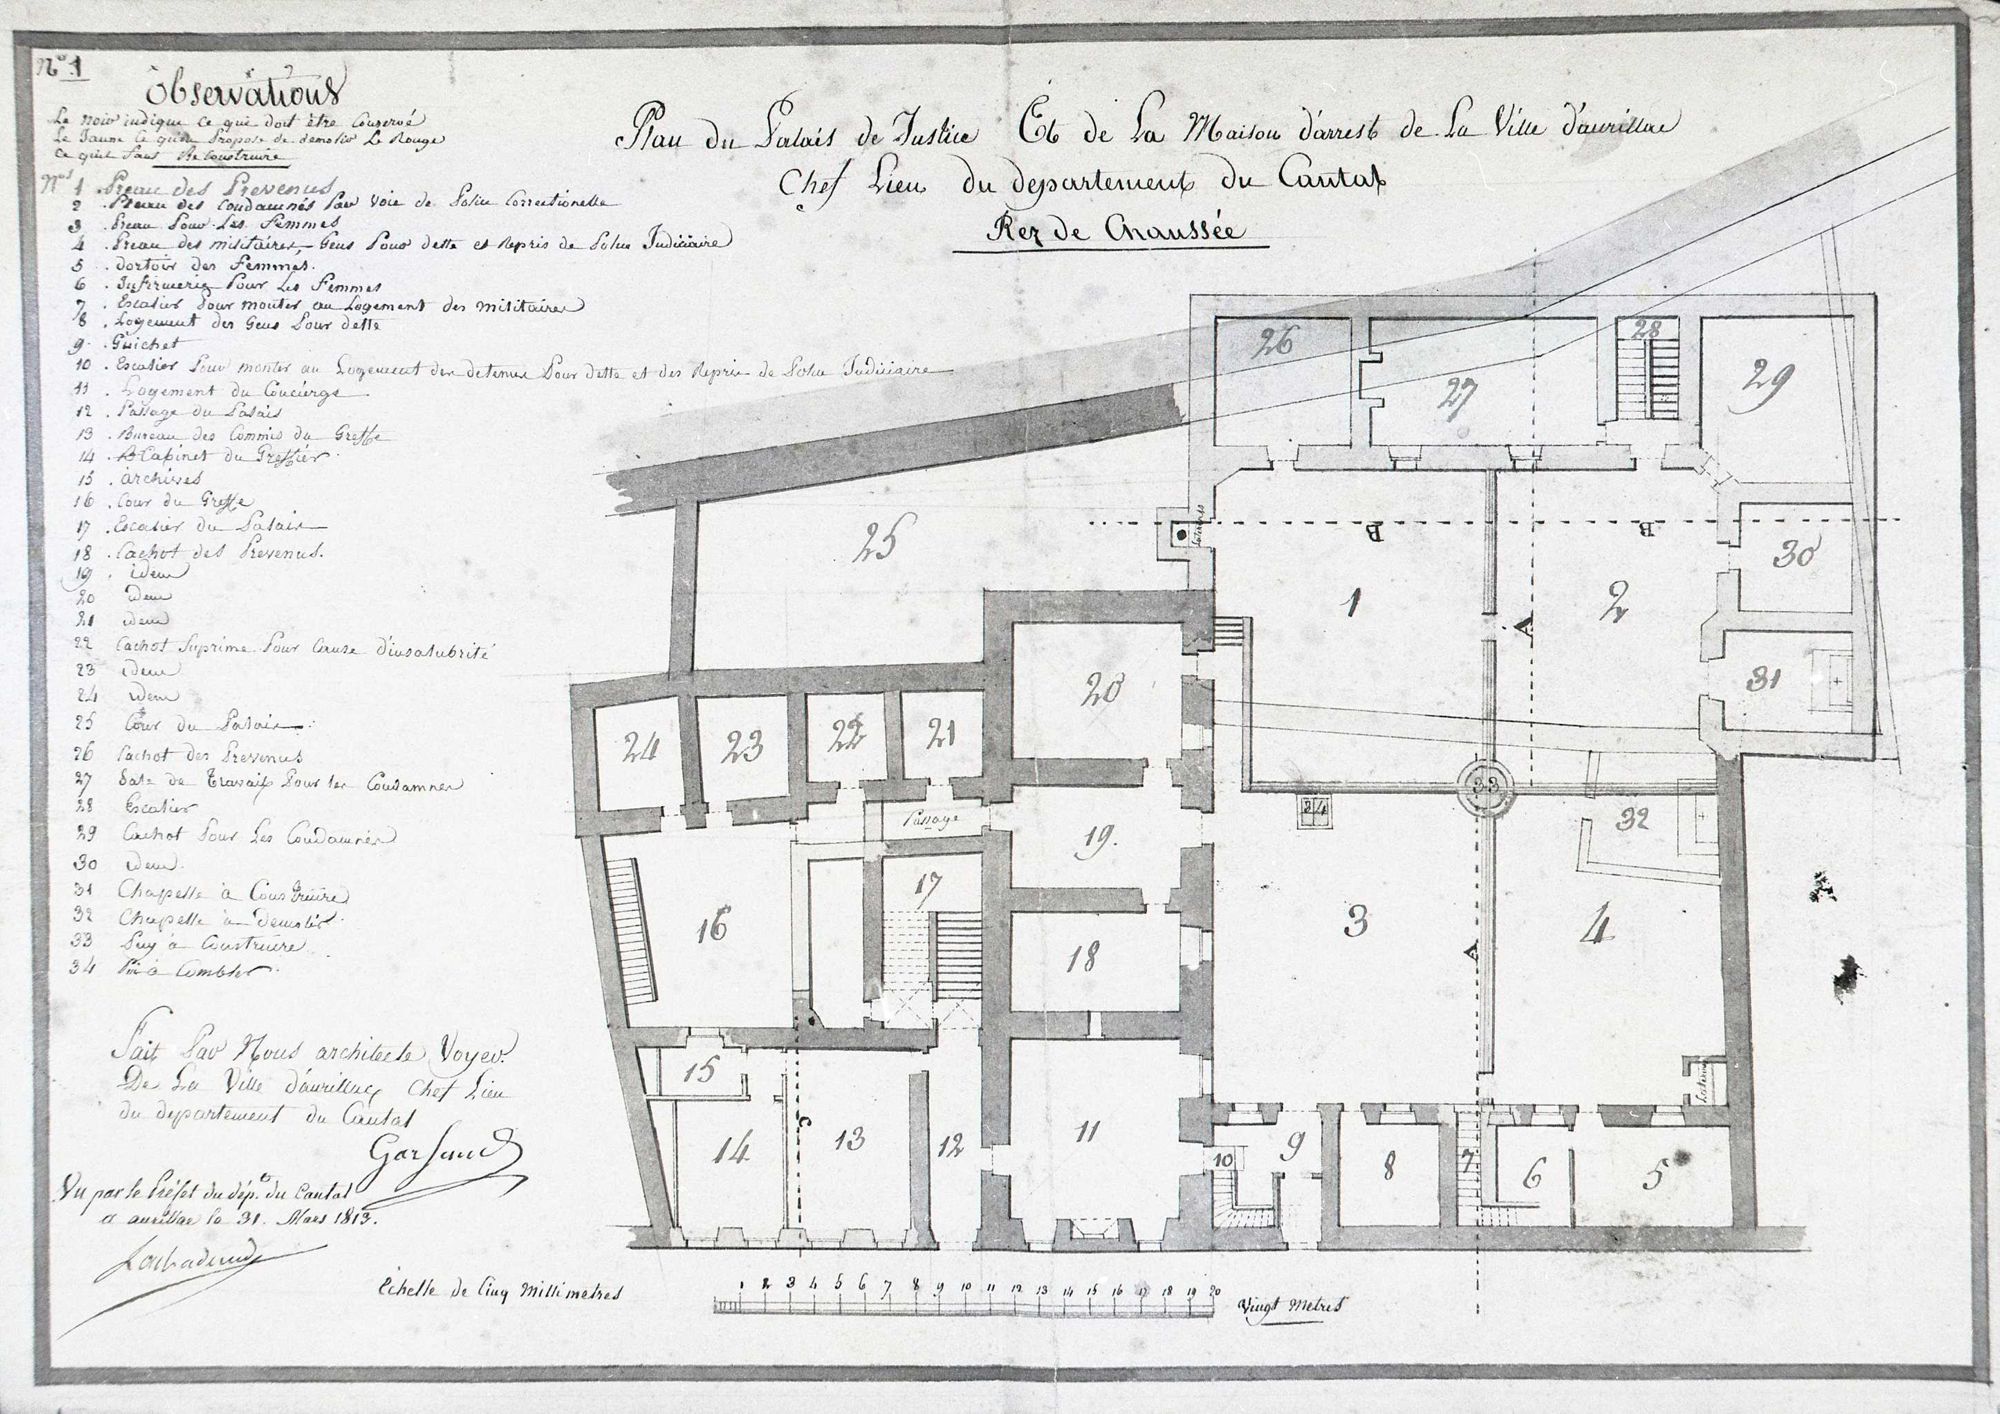 N° 1
Observations
Le Noir indique ce qui doit être Conservé
Le Jaune ce qu'on Propose de demolir Le Rouge
ce qu'il faut Reconstruire
Plan du Palais de Justice Et de La Maison d'arrest de La Ville d'aurillac
Chef Lieu du departement du Cantal
Rez de Chaussée
N°s 1 . Preau des Prevenus
2 . Preau des Condamnés Par voie de Police Correctionelle
3 . Preau Pour Les Femmes
4 . Preau des militaires, Gens Pour dette et Repris de Police Judiciaire
5 . dortoir des Femmes.
6 . Infirmerie Pour Les Femmes
7 . Escalier Pour monter au Logement des militaires
8 . Logement des Gens Pour dette
9 . Guichet
10 . Escalier Pour monter au Logement des detenus Pour dette et des Repris de Police Judiciaire
11 . Logement du Concierge
12 . Passage du Palais
13 . Bureau des Commis du Greffe
14 . Cabinet du Greffier
15 . archives
16 . Cour du Greffe
17 . Escalier du Palais
18 . Cachot des Prevenus.
19 . idem
20 idem
21 idem
22 Cachot Suprime Pour Cause d'insalubrité
23 idem
24 idem
25 Cour du Palais
26 Cachot des Prevenus
27 Sale de Travail Pour les Condamnes
28 Escalier
29 Cachot Pour Les Condamnés
30 idem
31 Chapelle à Construire
32 Chapelle à demolir
33 Puy à Construire
34 Puy à Combler
Fait Par Nous architecte Voyer
De La Ville d'aurillac Chef Lieu
du departement du Cantal
Vu par le Préfet du dép.t du Cantal
a aurillac le 31. Mars 1813.
26
27
28
29
25
Laterines
B
B
1
2
30
A
31
20
24
23
22
21
33
34
32
Passage
19.
17
16
18
3
4
A
15
Laterines
C
14
13
12
11
10
9
8
7
6
5
Echelle de Cinq Millimetres
1 2 3 4 5 6 7 8 9 10 11 12 13 14 15 16 17 18 19 20
Vingt Metres